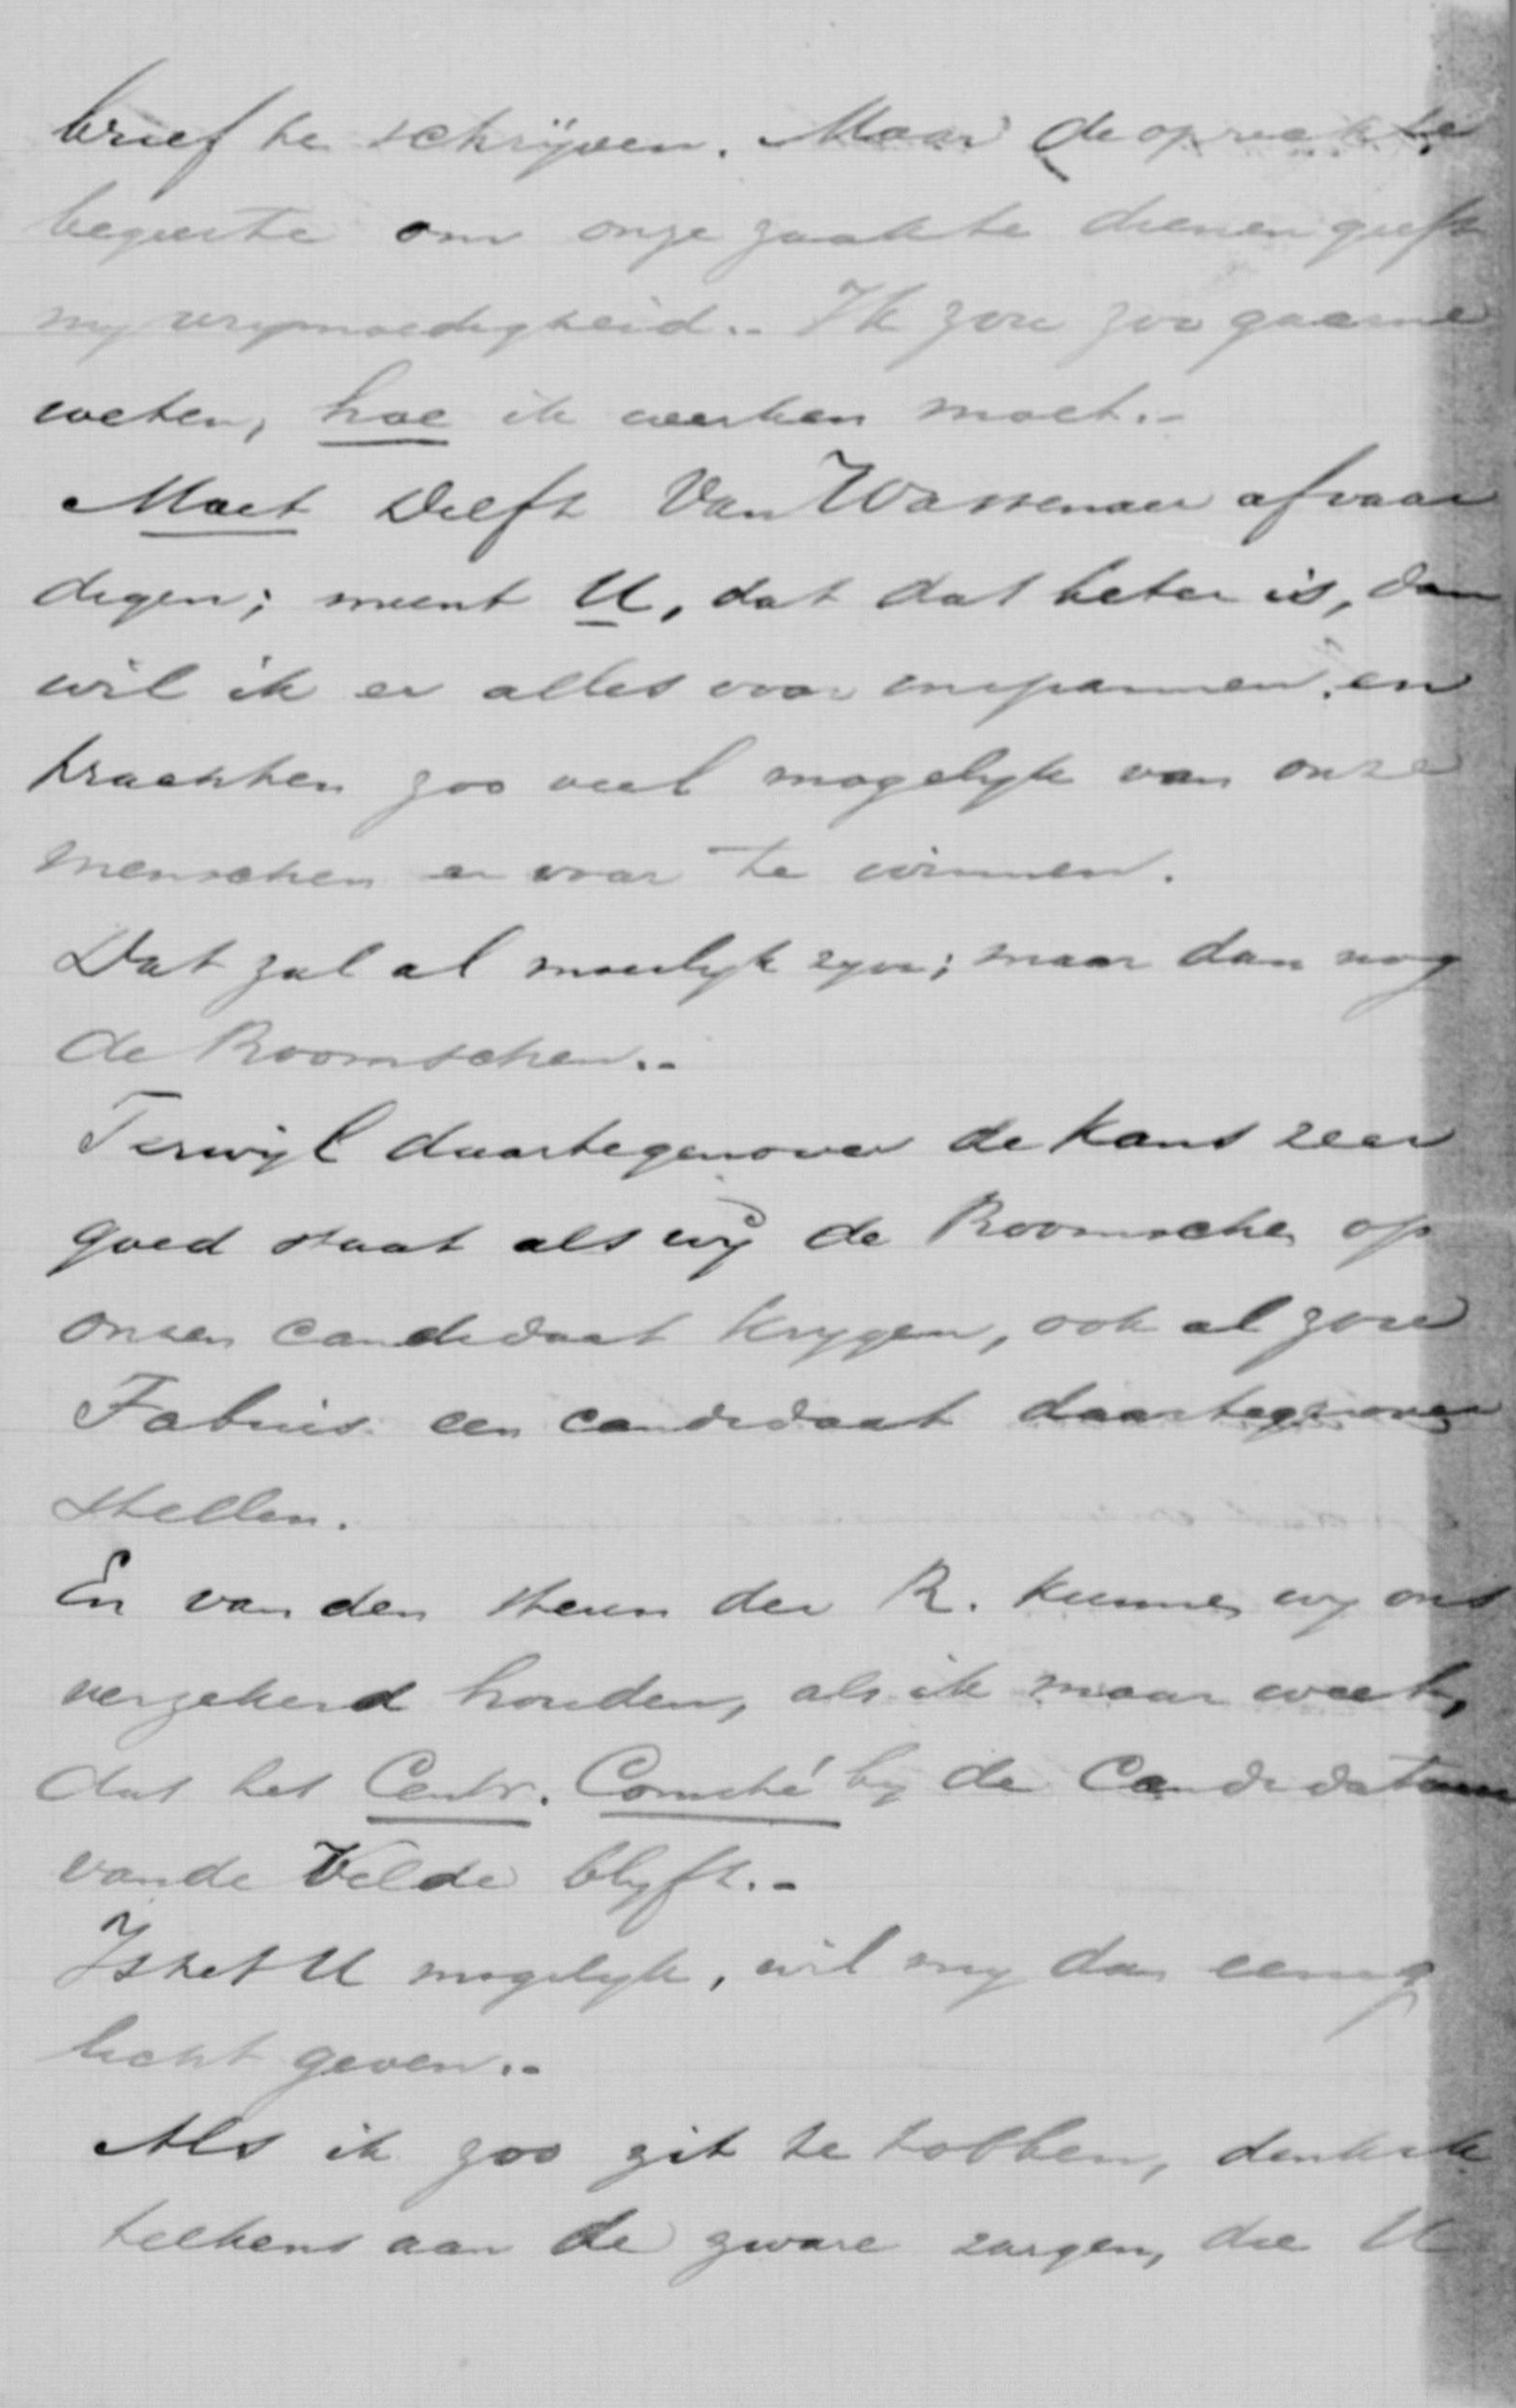 brief te schrijven. Maar de oprechte
begeerte om onze zaak te dienen geeft
my vrymoedigheid.- Ik zou zoo gaarne
weten, hoe ik werken moet.-
Moet Delft Van Wassenaer afvaar
digen; meent U, dat dat beter is, dan
wil ik er alles voor inspannen en
trachten zoo veel mogelyk van onze
menschen er voor te winnen.
Dat zal al moeilyk zyn; maar dan nog
de Roomschen.-
Terwyl daartegenover de kans zeer
goed staat als wy de Roomschen op
onzen candidaat krygen, ook al zou
Fabius een candidaat daartegenover
stellen.
En van den steun der R. kunnen wy ons
verzekerd houden, als ik maar weet,
dat het Centr. Comité by de Candidatuur
van de Velde blyft.-
Is het U mogelyk, wil my dan eenig
licht geven.-
Als ik zoo zit te tobben, denk ik
telkens aan de zware zorgen, die U